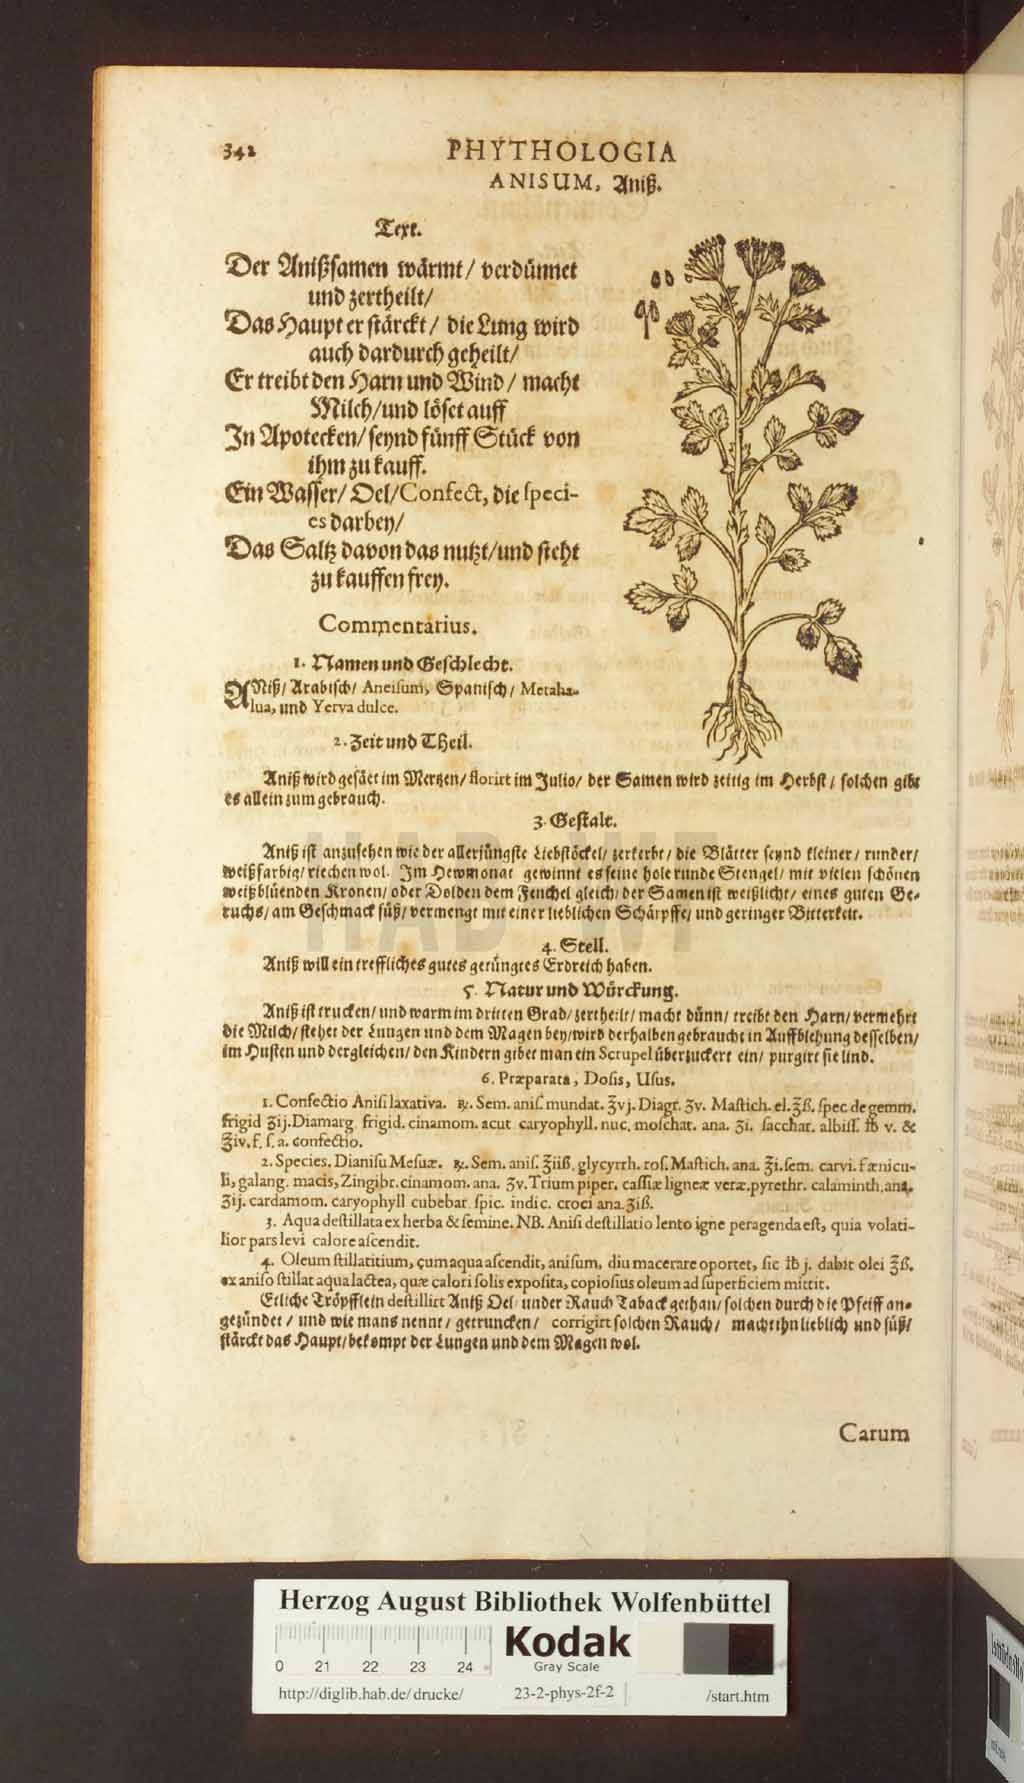 342
PHYTHOLOGIA
ANISUM, Aniß.
Text.
Der Anißsamen wärmt / verdünnet
und zertheilt /
Das Haupt er stärckt / die Lung wird
auch dardurch geheilt /
Er treibt den Harn und Wind / macht
Milch / und löset auff
In Apotecken / seynd fünff Stück von
ihm zu kauff.
Ein Wasser / Oel / Confect, die speci-
es darbey /
Das Saltz davon das nutzt / und steht
zu kauffen frey.
Commentarius.
1. Namen und Geschlecht.
ANiß / Arabisch / Aneisum, Spanisch / Metaha-
lua, und Yerva dulce.
2. Zeit und Theil.
Aniß wird gesäet im Mertzen / florirt im Julio / der Samen wird zeitig im Herbst / solchen gibt
es allein zum gebrauch.
3. Gestalt.
Aniß ist anzusehen wie der allerjüngste Liebstöckel / zerkerbt / die Blätter seynd kleiner / runder /
weißfarbig / riechen wol. Im Hewmonat gewinnt es seine hole runde Stengel / mit vielen schönen
weißblüenden Kronen / oder Dolden dem Fenchel gleich / der Samen ist weißlicht / eines guten Ge-
ruchs / am Geschmack süß / vermengt mit einer lieblichen Schärpffe / und geringer Bitterkeit.
4. Stell.
Aniß will ein treffliches gutes getüngtes Erdreich haben.
5. Natur und Würckung.
Aniß ist trucken / und warm im dritten Grad / zertheilt / macht dünn / treibt den Harn / vermehrt
die Milch / stehet der Lungen und dem Magen bey / wird derhalben gebraucht in Auffblehung desselben /
im Husten und dergleichen / den Kindern gibet man ein Scrupel überzuckert ein / purgirt sie lind.
6. Præparata, Dosis, Usus.
1. Confectio Anisi laxativa. ℞. Sem. anis. mundat. ℥vj. Diagr. ʒv. Mastich. el. ℥ß. spec de gemm.
frigid ʒij. Diamarg frigid. cinamom. acut caryophyll. nuc. moschat. ana. ʒi. sacchar. albiss. ℔ v. &
℥iv. f. s. a. confectio.
2. Species. Dianisu Mesuæ. ℞. Sem. anis. ℥iiß. glycyrrh. ros. Mastich. ana. ℥i. sem. carvi. fœnicu-
li, galang. macis, Zingibr. cinamom. ana. ʒv. Trium piper. cassiæ ligneæ veræ. pyrethr. calaminth. ana.
ʒij. cardamom. caryophyll cubebar. spic. indic. croci ana. ʒiß.
3. Aqua destillata ex herba & semine. NB. Anisi destillatio lento igne peragenda est, quia volati-
lior pars levi calore ascendit.
4. Oleum stillatitium, cum aqua ascendit, anisum, diu macerare oportet, sic ℔ j. dabit olei ℥ß.
ex aniso stillat aqua lactea, quæ calori solis exposita, copiosius oleum ad superficiem mittit.
Etliche Tröpfflein destillirt Aniß Oel under Rauch Taback gethan / solchen durch die Pfeiff an-
gezündet / und wie mans nennt / getruncken / corrigirt solchen Rauch / macht ihn lieblich und süß /
stärckt das Haupt / bekompt der Lungen und dem Magen wol.
Carum
HAB WF
Herzog August Bibliothek Wolfenbüttel
0 21 22 23 24
Kodak
Gray Scale
http://diglib.hab.de/drucke/ 23-2-phys-2f-2 /start.htm